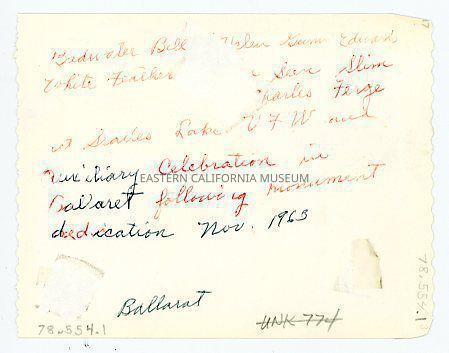 Badwater Bill Helen Gunn Edwards
White Feather & Seen Slim
Charles Ferge
at Searles Lake V F W and
Auxiliary Celebration in
EASTERN CALIFORNIA MUSEUM
Ballaret following monument
dedication Nov. 1963
Ballarat
78.554.1
UNK 774
78.554.1